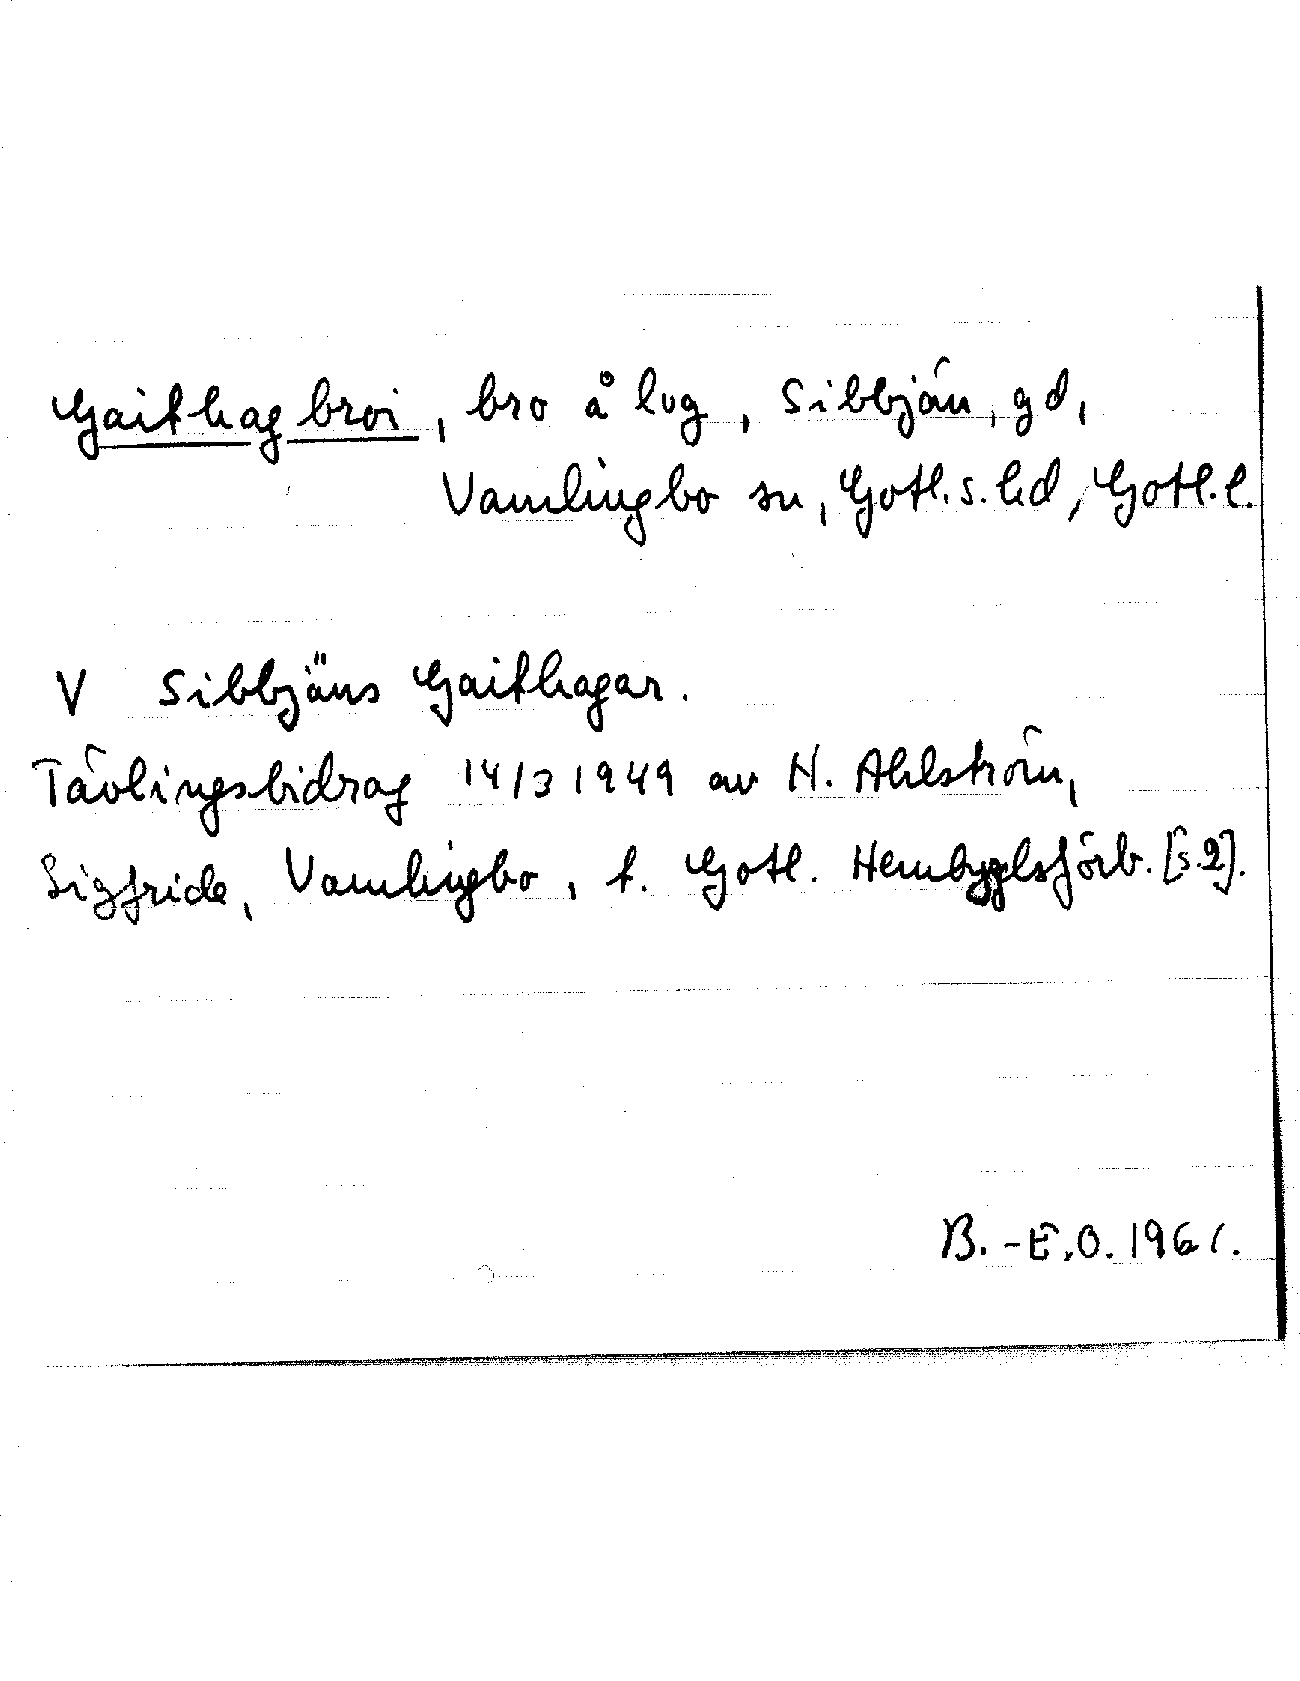 Gaithagbroi, bro å lvg, Sibbjän, gd,
Vamlingbo sn, Gotl. s. hd, Gotl. l.
V Sibbjäns Gaithagar.
Tävlingsbidrag 14/3 1949 av H. Ahlström,
Sigfride, Vamlingbo, t. Gotl. Hembygdsförb. [s. 2].
B.-E.O. 1961.